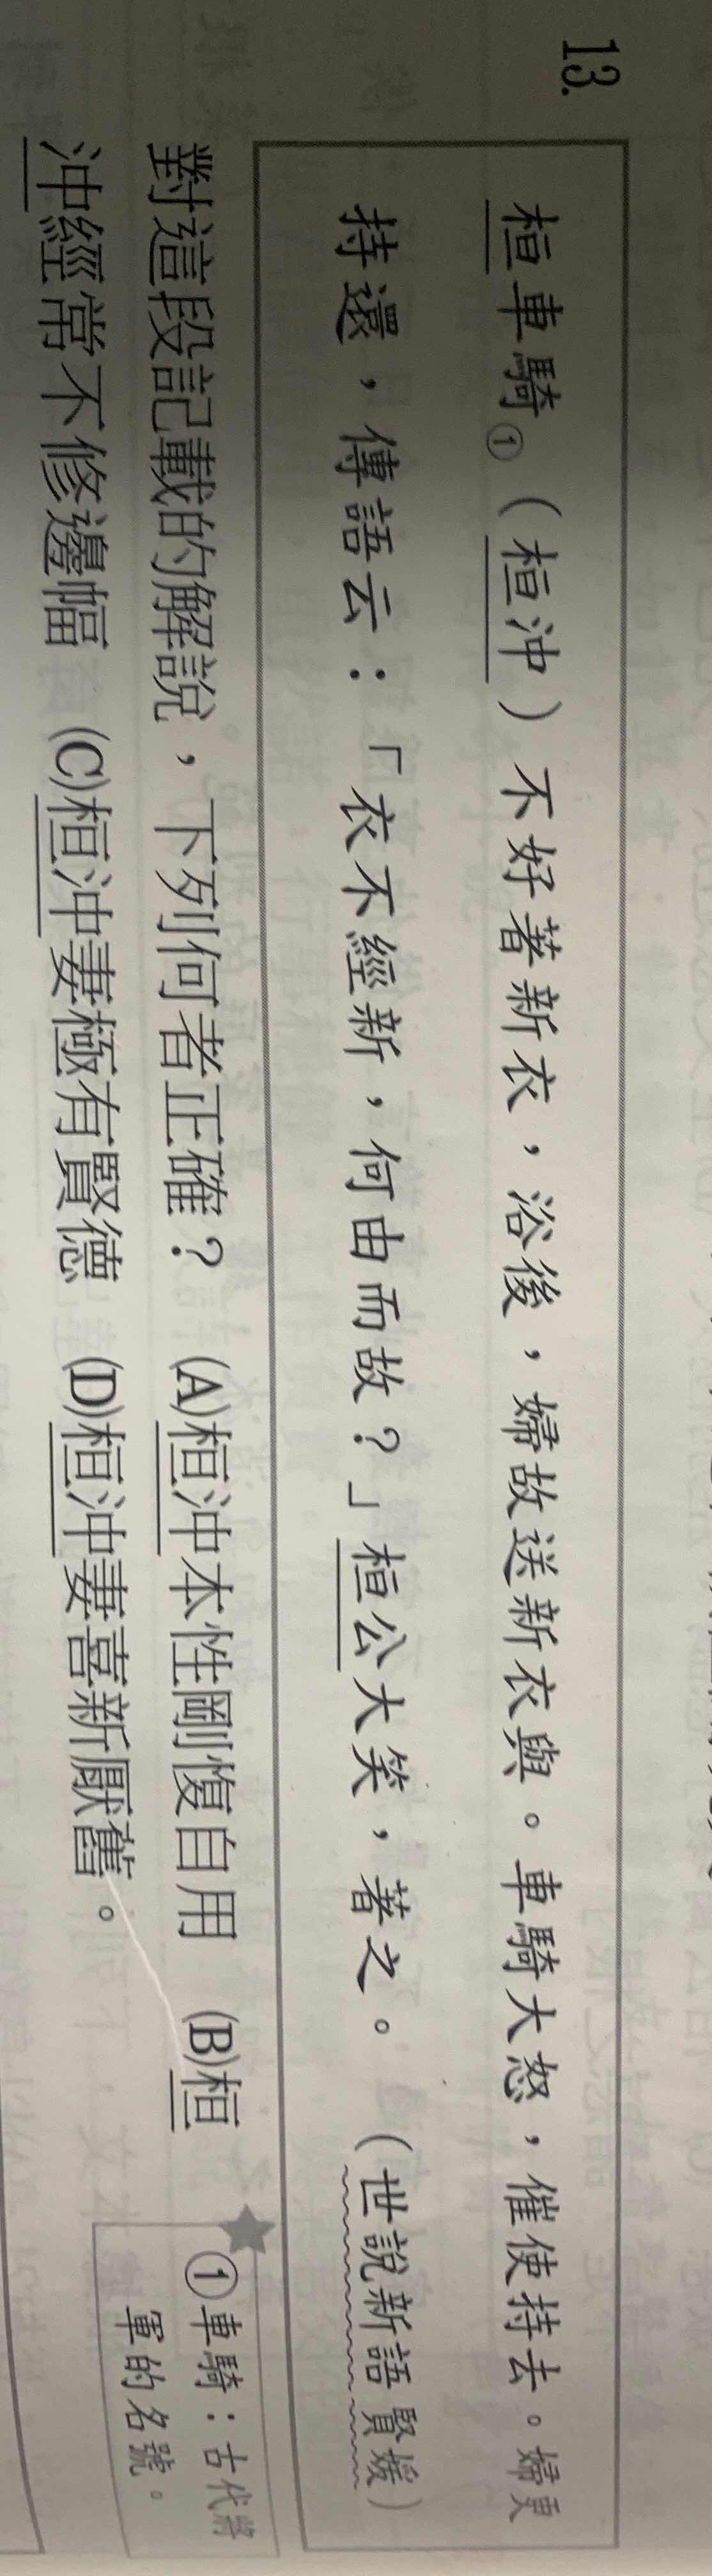 13.
桓車騎①（桓沖）不好著新衣，浴後，婦故送新衣與。車騎大怒，催使持去。婦更
持還，傳語云：「衣不經新，何由而故？」桓公大笑，著之。（世說新語賢媛）
對這段記載的解說，下列何者正確？ (A)桓沖本性剛愎自用 (B)桓
沖經常不修邊幅 (C)桓沖妻極有賢德 (D)桓沖妻喜新厭舊。
①車騎：古代將
軍的名號。